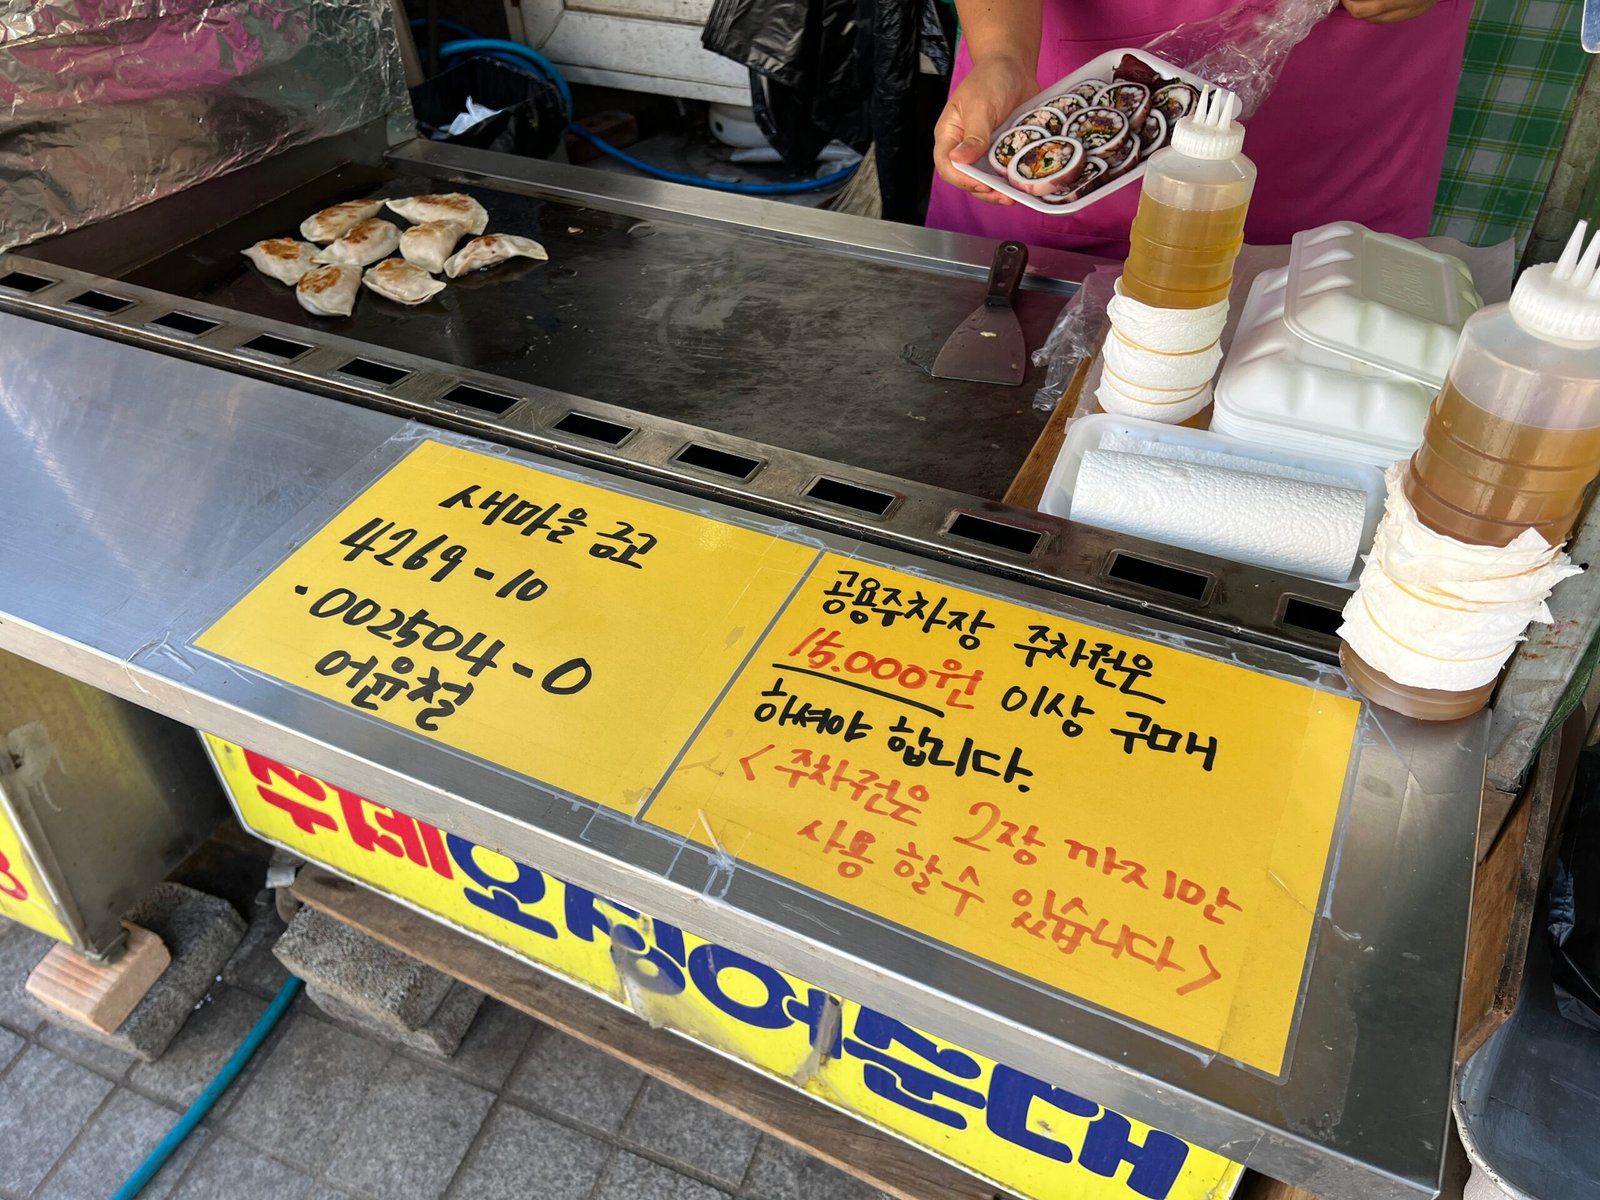 새마을 금고
4269-10
·002504-0
어윤철
공용주차장 주차권은
15.000원 이상 구매
하셔야 합니다.
<주차권은 2장 까지만
사용 할수 있습니다>
수제오징어순대